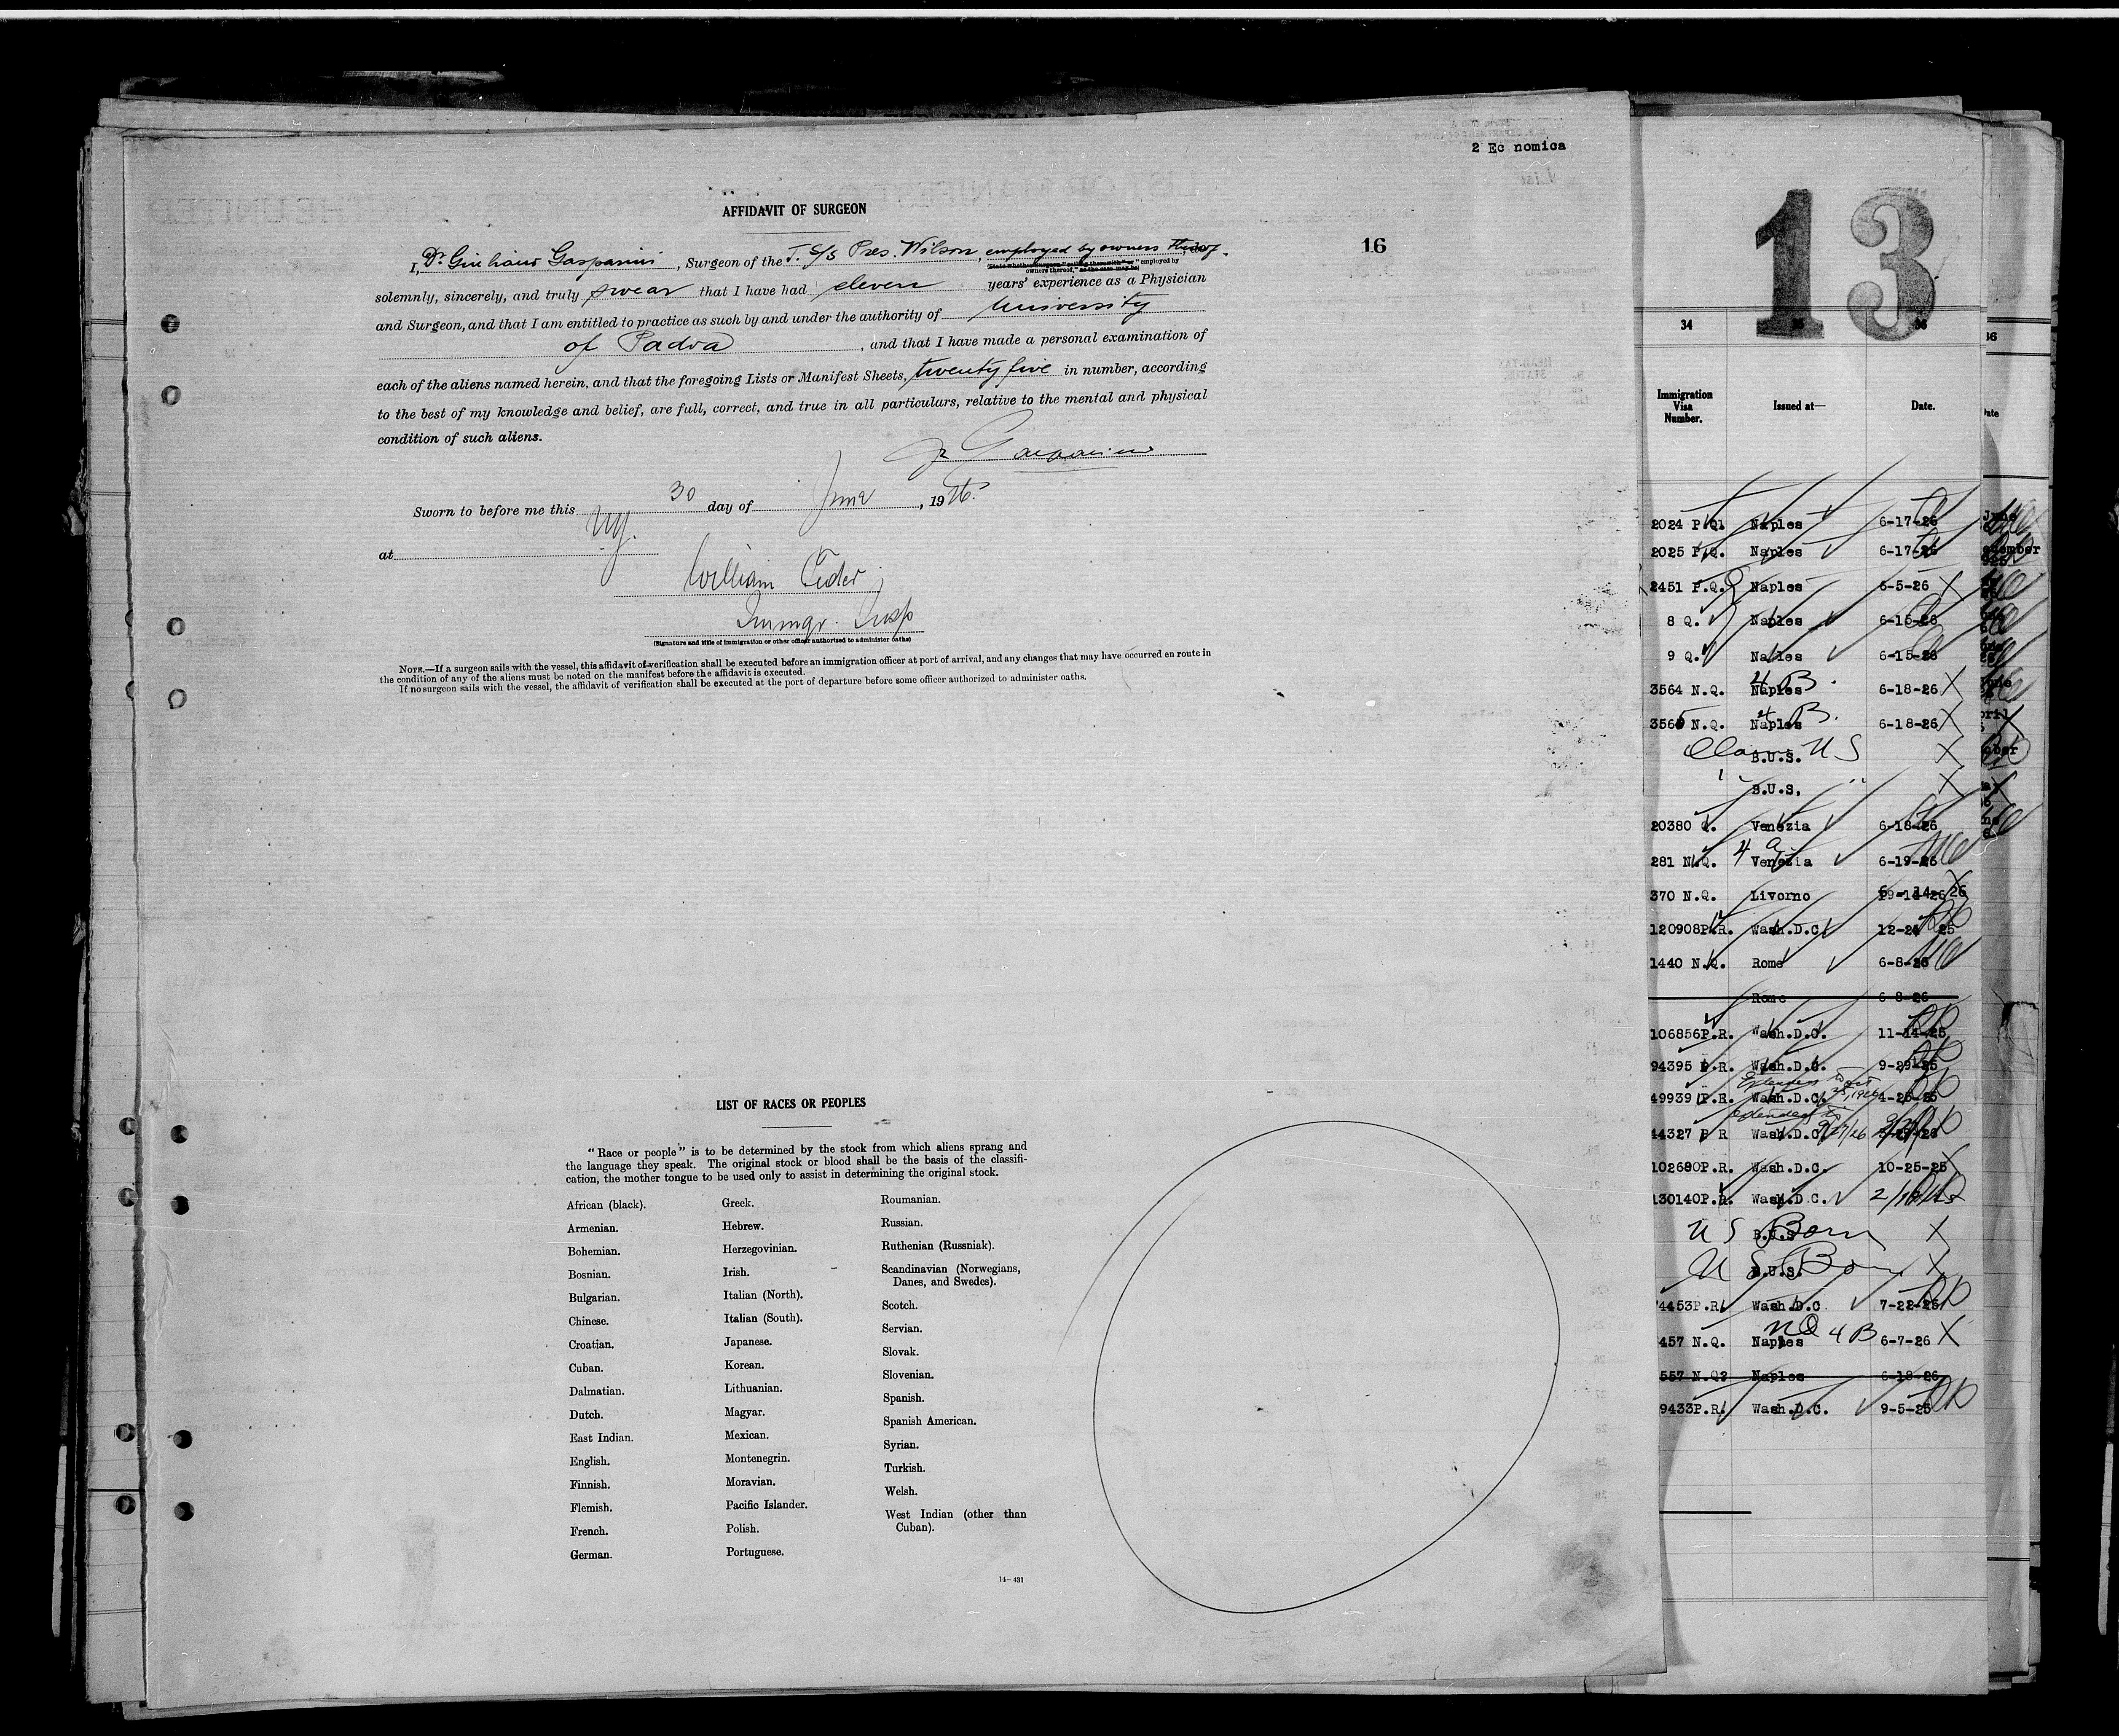 2 Ec nomica
AFFIDAVIT OF SURGEON
16
I, Dr. Giuliano Gasparini, Surgeon of the T. S/S Pres. Wilson, employed by owners thereof.
(State whether surgeon "sailing therewith" or "employed by
owners thereof," as the case may be)
solemnly, sincerely, and truly swear that I have had eleven years' experience as a Physician
and Surgeon, and that I am entitled to practice as such by and under the authority of University
of Padva, and that I have made a personal examination of
each of the aliens named herein, and that the foregoing Lists or Manifest Sheets, twenty five in number, according
to the best of my knowledge and belief, are full, correct, and true in all particulars, relative to the mental and physical
condition of such aliens.
Gasparini
Sworn to before me this 30 day of June, 1926.
at NY.
William
Immgr. Insp
(Signature and title of immigration or other officer authorized to administer oaths)
NOTE.—If a surgeon sails with the vessel, this affidavit of verification shall be executed before an immigration officer at port of arrival, and any changes that may have occurred en route in
the condition of any of the aliens must be noted on the manifest before the affidavit is executed.
If no surgeon sails with the vessel, the affidavit of verification shall be executed at the port of departure before some officer authorized to administer oaths.
LIST OF RACES OR PEOPLES
"Race or people" is to be determined by the stock from which aliens sprang and
the language they speak. The original stock or blood shall be the basis of the classifi-
cation, the mother tongue to be used only to assist in determining the original stock.
African (black).
Armenian.
Bohemian.
Bosnian.
Bulgarian.
Chinese.
Croatian.
Cuban.
Dalmatian.
Dutch.
East Indian.
English.
Finnish.
Flemish.
French.
German.
Greek.
Hebrew.
Herzegovinian.
Irish.
Italian (North).
Italian (South).
Japanese.
Korean.
Lithuanian.
Magyar.
Mexican.
Montenegrin.
Moravian.
Pacific Islander.
Polish.
Portuguese.
Roumanian.
Russian.
Ruthenian (Russniak).
Scandinavian (Norwegians,
Danes, and Swedes).
Scotch.
Servian.
Slovak.
Slovenian.
Spanish.
Spanish American.
Syrian.
Turkish.
Welsh.
West Indian (other than
Cuban).
14—431
13
34 35 36
Immigration
Visa
Number.
Issued at—
Date.
2024 P.Q. Naples 6-17-26
2025 P.Q. Naples 6-17-26
2451 P.Q. Naples 6-5-26
8 Q. Naples 6-15-26
9 Q. Naples 6-15-26
4 B.
3564 N.Q. Naples 6-18-26
4 B.
3565 N.Q. Naples 6-18-26
B.U.S. U S
B.U.S.
20380 Q. Venezia 6-18-26
281 N.Q. 4 a Venezia 6-19-26
370 N.Q. Livorno
120908P.R. Wash.D.C. 25
1440 N.Q. Rome 6-8-26
Rome 6-8-26
106856P.R. Wash.D.C. 11-14-25
94395 P.R. Wash.D.C. 9-29-25
49939 P.R. Wash.D.C. 4-25-25
extended to
44327 P R Wash.D.C. 9/27/26
102680P.R. Wash.D.C. 10-25-25
130140P.R. Wash.D.C.
U S Born B.U.S
U S Born B.U.S.
4453P.R. Wash.D.C 7-22-25
NQ 4 B
457 N.Q. Naples 6-7-26
557 N.Q? Naples 6-18-26
9433P.R. Wash.D.C. 9-5-25
36
Date